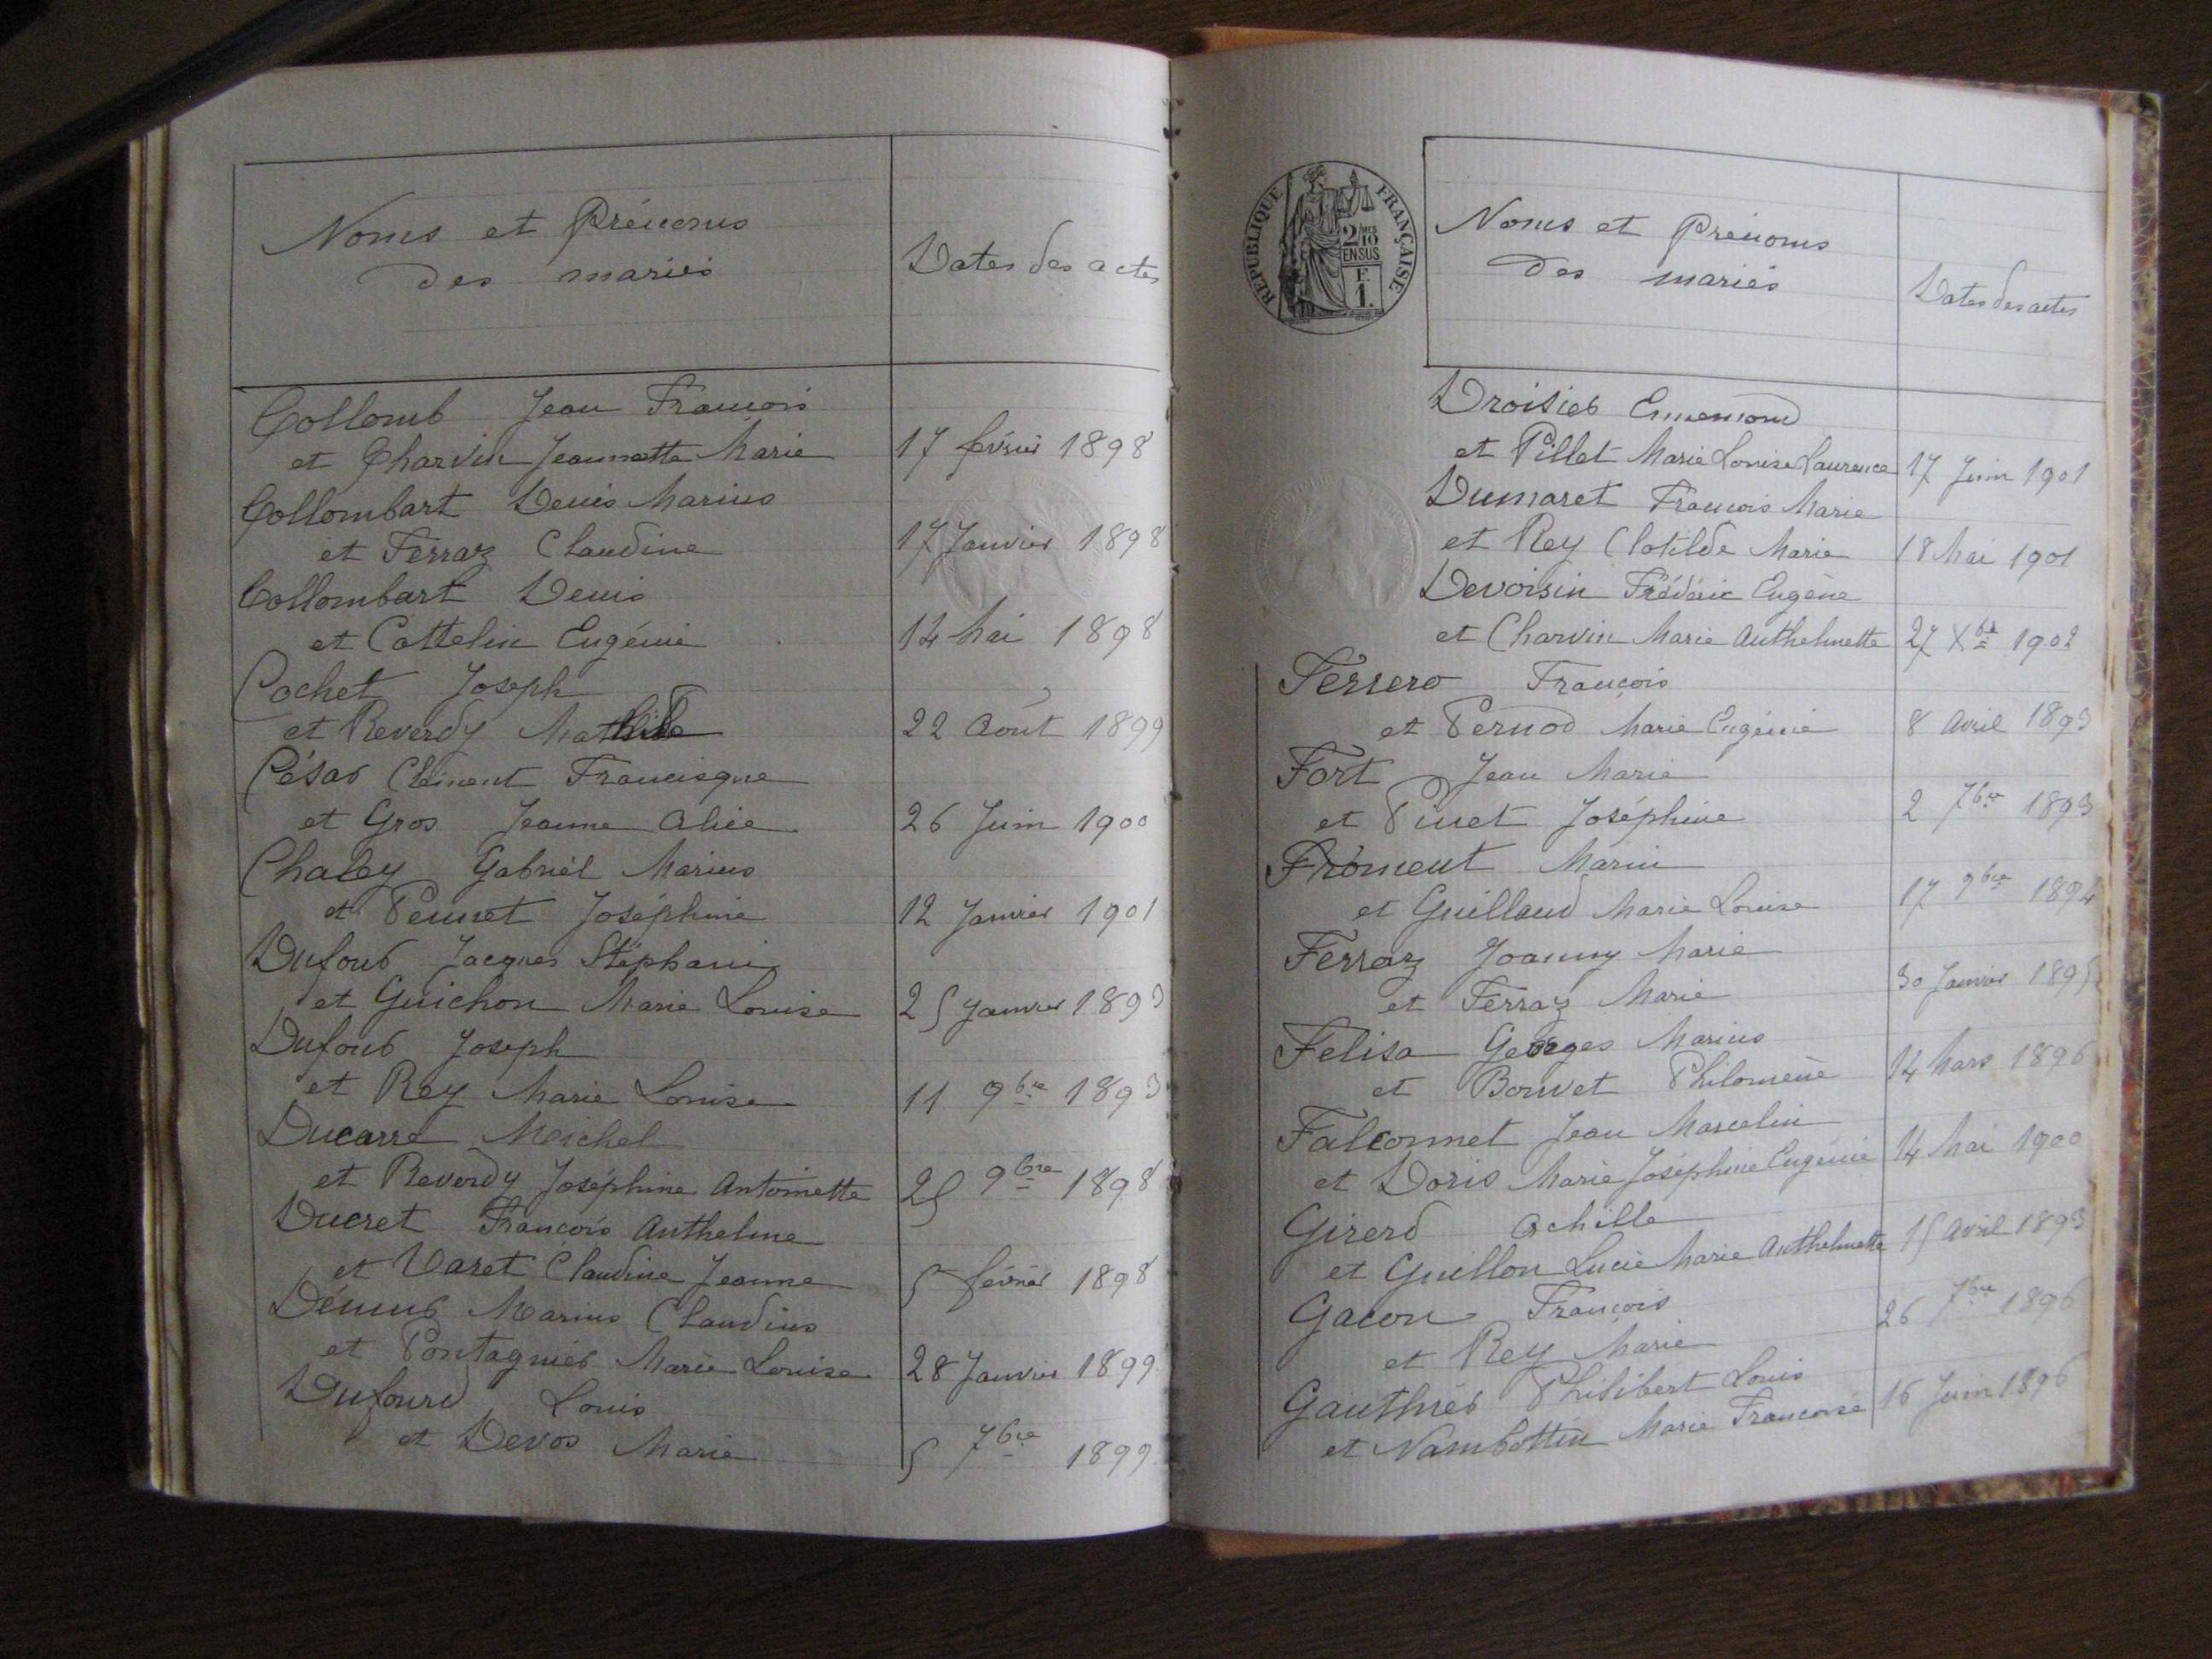 Noms et Prénoms
des mariés
Dates des actes
Collomb Jean François
et Charvin Jeannette Marie 17 février 1898
Collombart Denis Marius
et Ferraz Claudine 17 Janvier 1898
Collombart Denis
et Cattelin Eugénie 14 Mai 1898
Cochet Joseph
et Reverdy Mathilde 22 Août 1899
César Clément Francisque
et Gros Jeanne Alice 26 Juin 1900
Chaley Gabriel Marius
et Pennet Joséphine 12 Janvier 1901
Dufour Jacques Stéphanie
et Guichon Marie Louise 25 Janvier 1893
Dufour Joseph
et Rey Marie Louise 11 9bre 1893
Ducarre Meichel
et Reverdy Joséphine Antoinette 25 9bre 1898
Ducret François Anthelme
et Varet Claudine Jeanne 5 février 1898
Démur Marius Claudius
et Pontagnier Marie Louise 28 Janvier 1899
Dufourd Louis
et Devos Marie 5 7bre 1899
REPUBLIQUE FRANÇAISE
2/MES
10
EN SUS
F.
1.
Noms et Prénoms
des mariés
Dates des actes
Droisier Ennemond
et Pillet Marie Louise Laurence 17 Juin 1901
Dumaret François Marie
et Rey Clotilde Marie 18 Mai 1901
Devoisin Frédéric Eugène
et Charvin Marie Anthelmette 27 Xbre 1902
Ferrero François
et Pernod Marie Eugénie 8 Avril 1893
Fort Jean Marie
et Pinet Joséphine 2 7bre 1893
Froment Marin
et Guillaud Marie Louise 17 9bre 1894
Ferraz Joanny Marie
et Ferraz Marie 30 Janvier 1895
Felisa Georges Marius
et Bouvet Philomène 14 Mars 1896
Falconnet Jean Marcelin
et Doris Marie Joséphine Eugénie 14 Mai 1900
Girerd Achille
et Guillon Lucie Marie Anthelmette 15 Avril 1893
Gacon François
et Rey Marie 26 7bre 1896
Gauthier Philibert Louis
et Nambottin Marie Françoise 16 Juin 1896